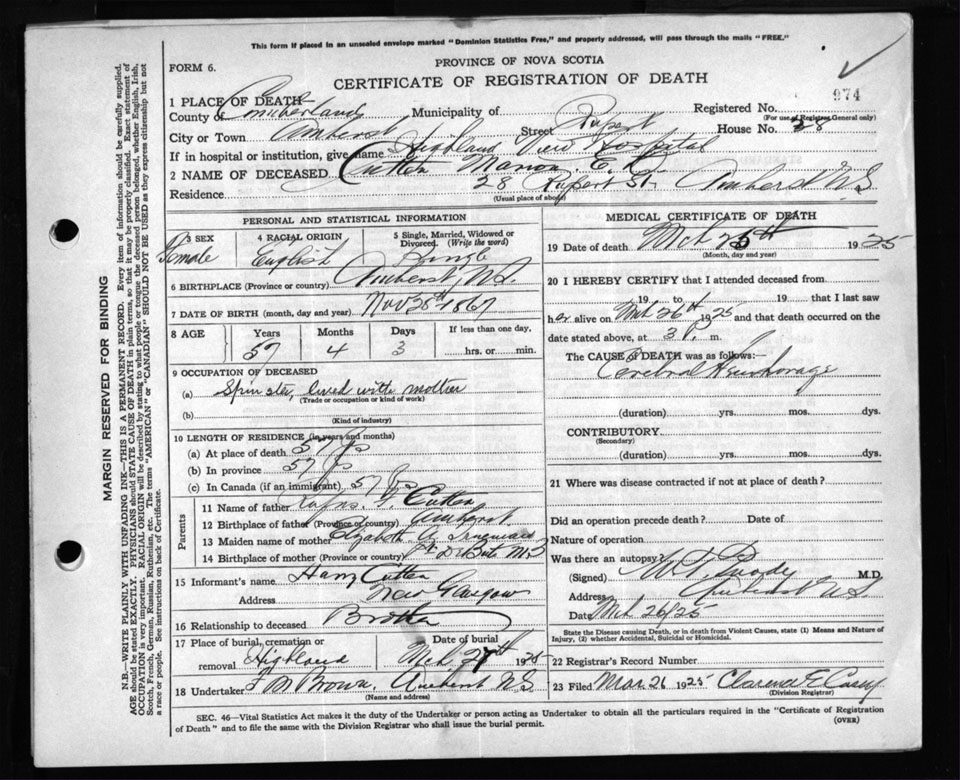 This form if placed in an unsealed envelope marked "Dominion Statistics Free," and properly addressed, will pass through the mails "FREE."
FORM 6.
PROVINCE OF NOVA SCOTIA
CERTIFICATE OF REGISTRATION OF DEATH
974
1 PLACE OF DEATH—
County of Cumberland Municipality of Registered No.
(For use of Registrar General only)
City or Town Amherst Street Rupert House No. 28
If in hospital or institution, give name Highland View Hospital
2 NAME OF DECEASED Cutten Marion E.
Residence 28 Rupert St. Amherst N.S.
(Usual place of abode)
PERSONAL AND STATISTICAL INFORMATION
3 SEX Female
4 RACIAL ORIGIN English
5 Single, Married, Widowed or Divorced. (Write the word) Single
6 BIRTHPLACE (Province or country) Amherst N.S.
7 DATE OF BIRTH (month, day and year) Nov 1867
8 AGE Years Months Days If less than one day,
57 4 3 hrs. or min.
9 OCCUPATION OF DECEASED
(a) Spinster, lived with mother
(Trade or occupation or kind of work)
(b)
(Kind of industry)
10 LENGTH OF RESIDENCE (in years and months)
(a) At place of death 57 yrs
(b) In province 57 yrs
(c) In Canada (if an immigrant) 57 yrs
Parents
11 Name of father Cutten
12 Birthplace of father (Province or country) Amherst
13 Maiden name of mother Elizabeth
14 Birthplace of mother (Province or country)
15 Informant's name Harry Cutten
Address New Glasgow
16 Relationship to deceased Brother
17 Place of burial, cremation or removal Highland Date of burial Mch 1925
18 Undertaker F M Brown, Amherst N.S.
(Name and address)
MEDICAL CERTIFICATE OF DEATH
19 Date of death Mch 1925
(Month, day and year)
20 I HEREBY CERTIFY that I attended deceased from
19 to 19 that I last saw
her alive on Mch 26th 1925 and that death occurred on the
date stated above, at 3 P. m.
The CAUSE OF DEATH was as follows:—
Cerebral Hemhorage
(duration) yrs. mos. dys.
CONTRIBUTORY
(Secondary)
(duration) yrs. mos. dys.
21 Where was disease contracted if not at place of death?
Did an operation precede death? Date of
Nature of operation
Was there an autopsy?
(Signed) M.D.
Address Amherst N.S.
Date Mch 26/25
State the Disease causing Death, or in death from Violent Causes, state (1) Means and Nature of Injury, (2) whether Accidental, Suicidal or Homicidal.
22 Registrar's Record Number
23 Filed Mar 26 1925 Clarence E Casey
(Division Registrar)
SEC. 46—Vital Statistics Act makes it the duty of the Undertaker or person acting as Undertaker to obtain all the particulars required in the "Certificate of Registration
of Death" and to file the same with the Division Registrar who shall issue the burial permit.
(OVER)
MARGIN RESERVED FOR BINDING
N.B.—WRITE PLAINLY WITH UNFADING INK—THIS IS A PERMANENT RECORD. Every item of information should be carefully supplied.
AGE should be stated EXACTLY. PHYSICIANS should STATE CAUSE OF DEATH in plain terms, so that it may be properly classified. Exact statement of
OCCUPATION is very important. RACIAL ORIGIN will be described by stating to what people or tongue the deceased person belonged, whether English, Irish,
Scotch, French, German, Russian, Ruthenian, etc. The terms "AMERICAN" or "CANADIAN" SHOULD NOT BE USED as they express citizenship but not
a race or people. See instructions on back of Certificate.